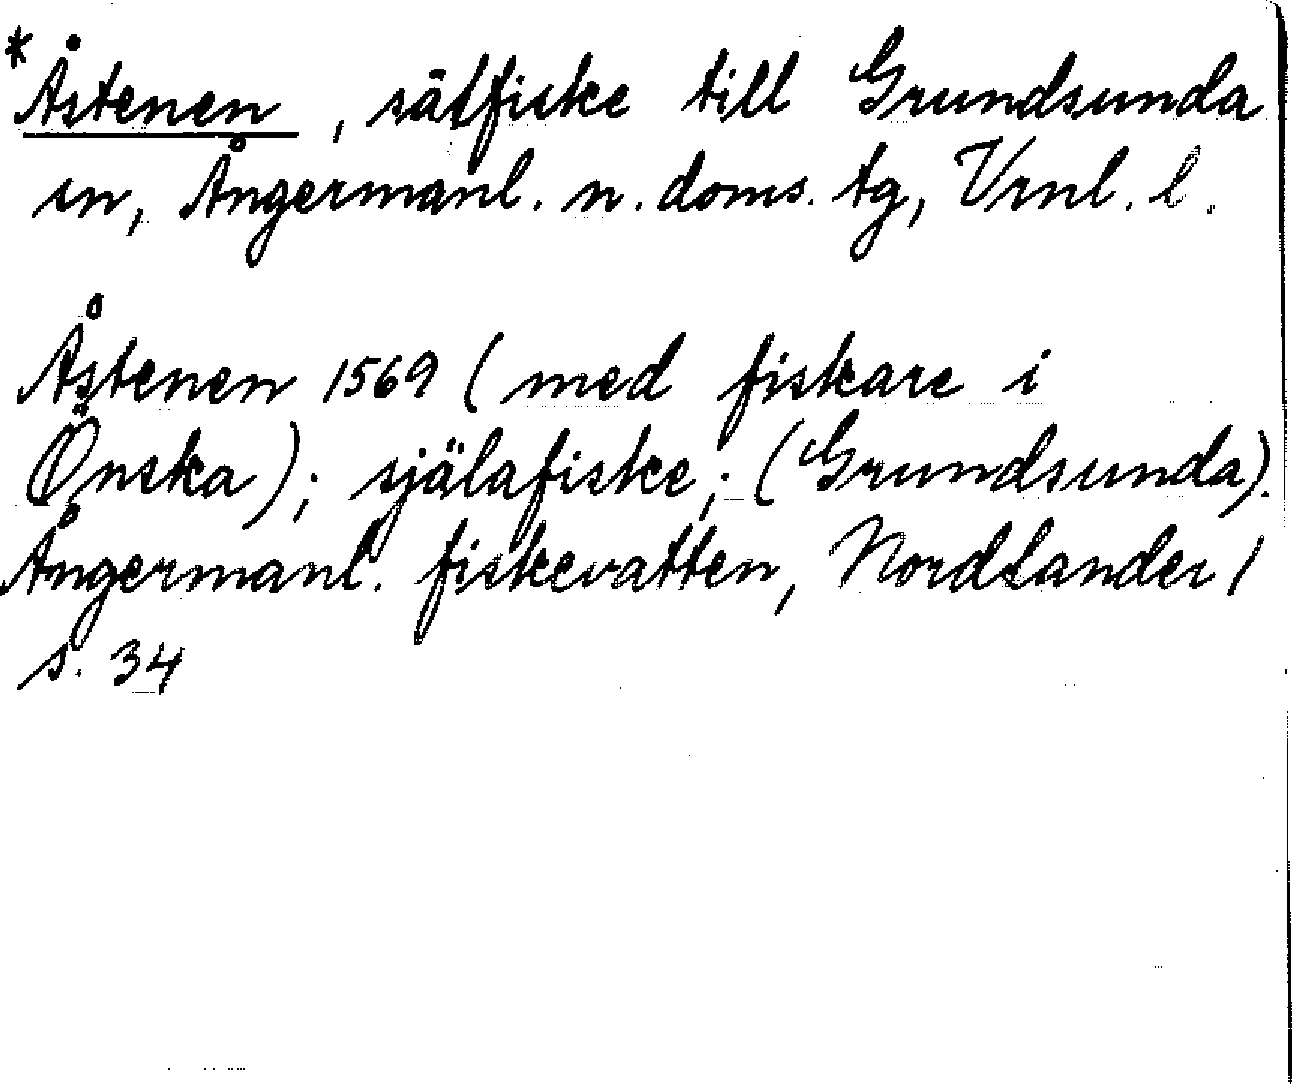 *Åstenen, sälfiske till Grundsunda
sn, Ångermanl. n. doms. tg, Vrnl. l.
Åstenen 1569 (med fiskare i
Önska); själafiske; (Grundsunda).
Ångermanl. fiskevatten, Nordlander 1
s. 34